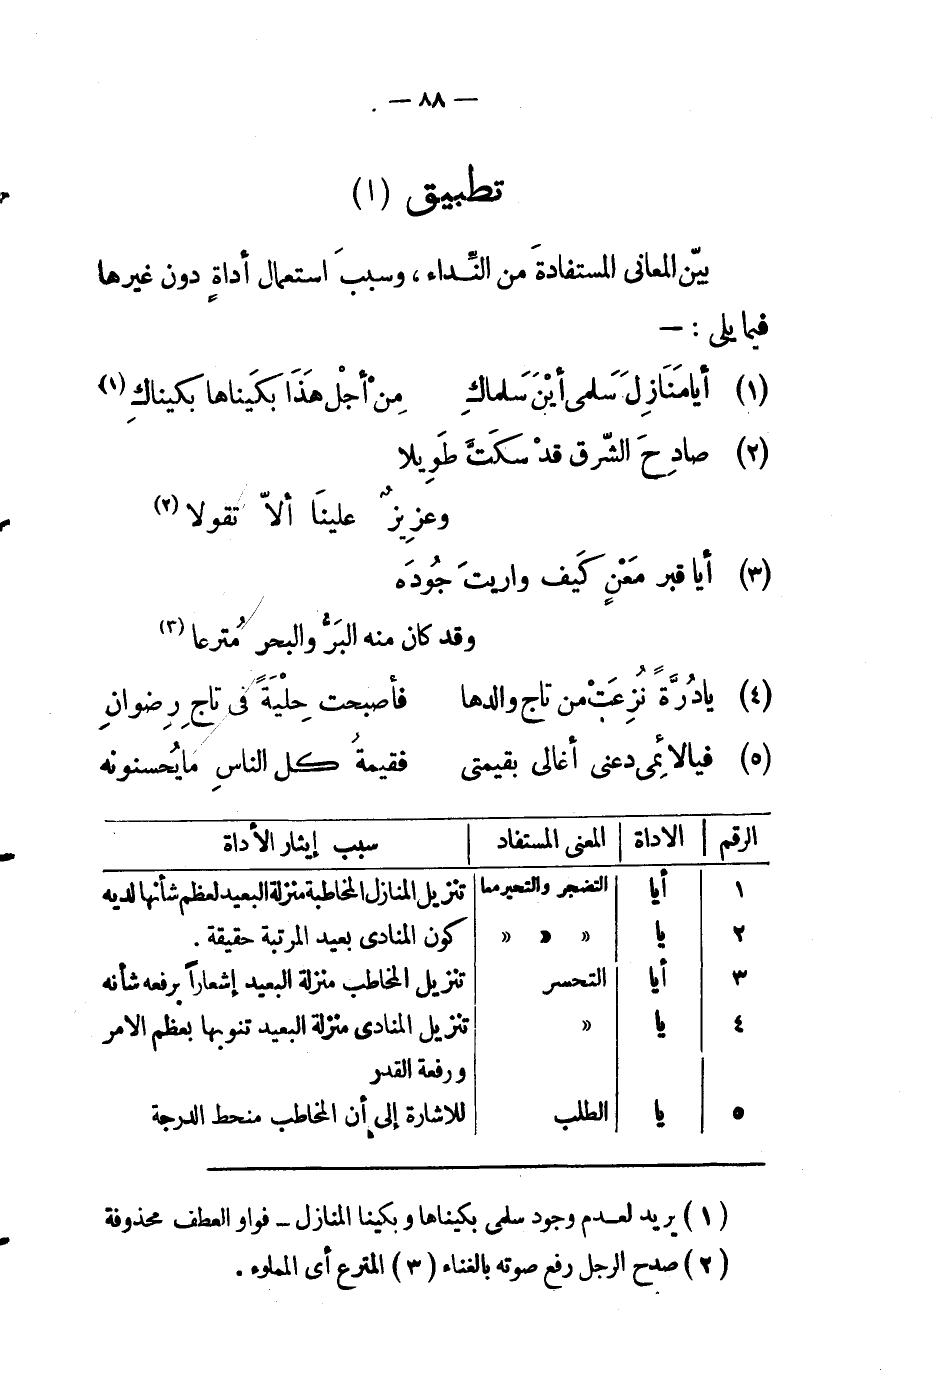 — ٨٨ —
تطبيق (١)
بيّن المعانى المستفادةَ من النِّداء ، وسببَ استعمال أداةٍ دون غيرها
فيما يلى : —
(١) أيا مَنَازِلَ سَلمى أيْنَ سَلماكِ مِنْ أجْل هَذَا بكَيناها بكيناكِ (١)
(٢) صادِحَ الشّرق قدْ سكَتَّ طَوِيلا
وعزِيزٌ علينَا ألاّ تقولا (٢)
(٣) أيا قبر مَعْنٍ كَيف واريتَ جُودَه
وقد كان منه البَرُّ والبحر مُترعا (٣)
(٤) يا دُرَّةً نُزِعَتْ من تاج والدها فأصبحت حِلْيَةً فى تاجِ رِضوانِ
(٥) فيا لائِمى دعنى أغالى بقيمتى فقيمةُ كل الناسِ مَا يُحسنونه
الرقم | الاداة | المعنى المستفاد | سبب إيثار الأداة
١ | أيا | التضجر والتحير معا | تنزيل المنازل المخاطبة منزلة البعيد لعظم شأنها لديه
٢ | يا | » » » | كون المنادى بعيد المرتبة حقيقة .
٣ | أيا | التحسر | تنزيل المخاطب منزلة البعيد إشعاراً برفعه شأنه
٤ | يا | » | تنزيل المنادى منزلة البعيد تنويها بعظم الامر
ورفعة القدر
٥ | يا | الطلب | للاشارة إلى أن المخاطب منحط الدرجة
(١) يريد لعدم وجود سلمى بكيناها وبكينا المنازل – فواو العطف محذوفة
(٢) صدح الرجل رفع صوته بالغناء (٣) المترع أى المملوء .